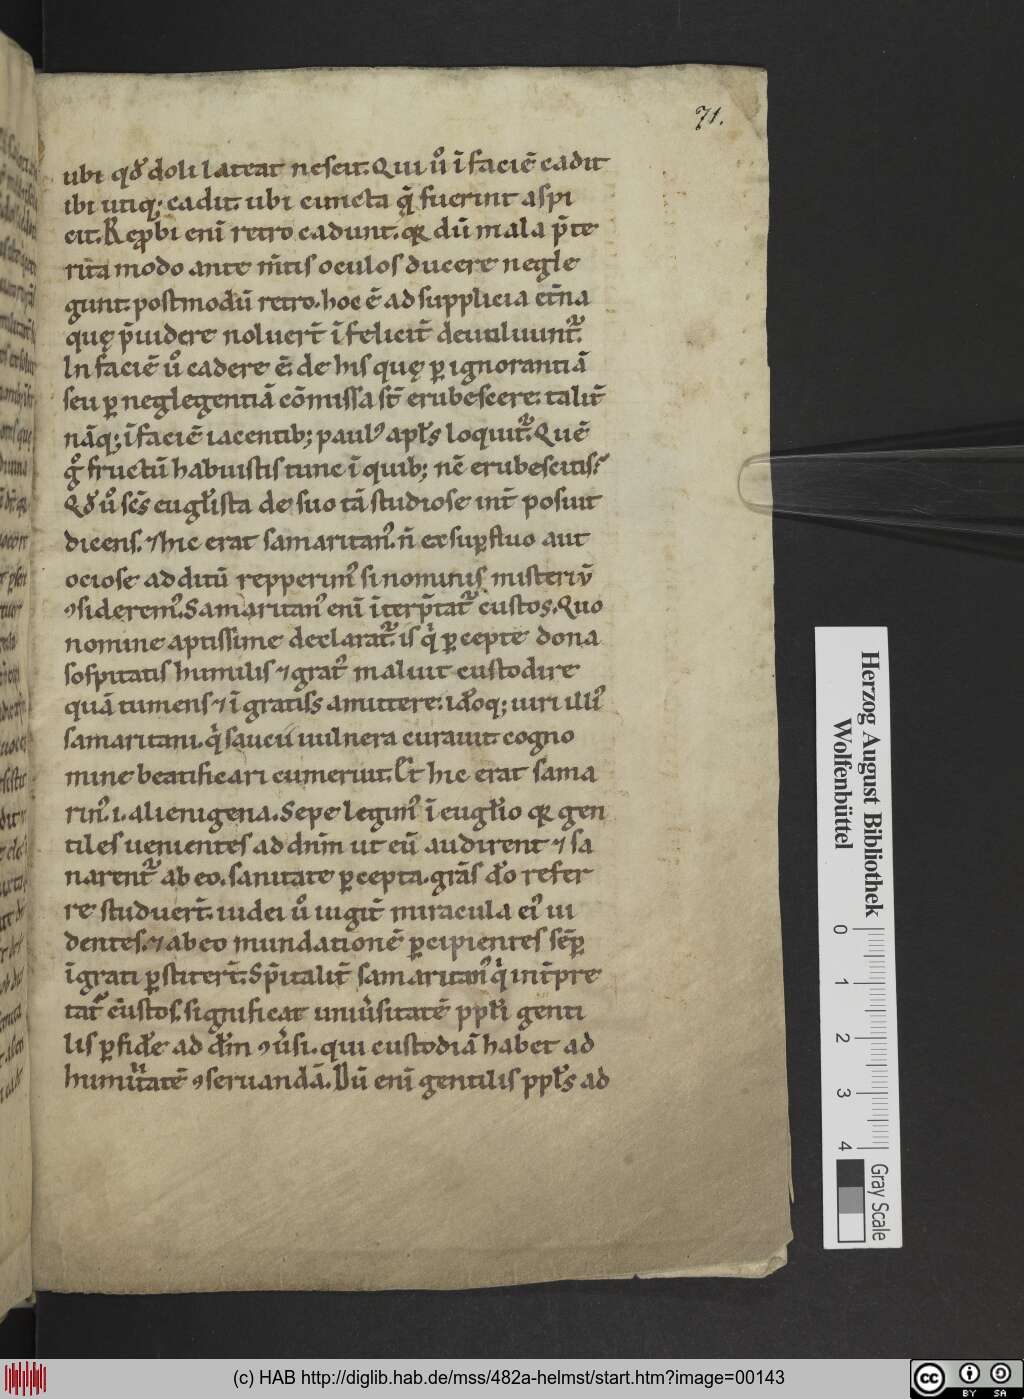 71.
ubi qđ doli lateat nescit. Qui ů ī faciē cadit
ibi utiq; cadit. ubi cuncta q̄ fuerint aspi
cit. Reꝓbi eni retro cadunt. qꝛ dū mala p̄te
rita modo ante m̄tis oculos ducere negle
gunt. postmodū retro. hoc ē ad supplicia et̄na
quę p̄uidere noluer̄t īfelicit̄ deuoluunt᷑.
In faciē ů cadere ē. de his quę ꝑ ignorantiā
seu ꝑ neglegentiā cōmissa st̄ erubescere. talit̄
nāq; ī faciē iacentib; paulꝰ apl̄s loquit᷑. Quē
gͦ fructū habuistis tunc ī quib; nc̄ erubescitis?
Qđ ů sc̄s eugl̄ista de suo tā studiose int̄posuit
dicens. ⁊ hic erat samaritanꝰ. n̄ ex suꝑfluo aut
ociose additū repperimꝰ si nominis misteriū
ꝯsideremꝰ. Samaritanꝰ eni īterp̄tat᷑ custos. Quo
nomine aptissime declarat᷑ is q̇ ꝑcepte dona
sospitatis humilis ⁊ gratꝰ maluit custodire
quā tumens ⁊ īgratiss amittere. iđoq; uiri illiꝰ
samaritani. q̇ saucii uulnera curauit. cogno
mine beatificari cumeruit. Et hic erat sama
rinꝰ. i. alienigena. Sepe legimꝰ ī eugl̄io qꝛ gen
tiles uenientes ad dn̄m ut eū audirent ⁊ sa
narent᷑ ab eo. sanitate ꝑcepta. grās đo refer
re studuer̄t. iudei ů iugit̄ miracula eiꝰ ui
dentes. ⁊ ab eo mundationē ꝑcipientes sēꝑ
īgrati ꝑstiter̄t. Sp̄italit̄ samaritanꝰ q̇ int̄pre
tat᷑ custos. significat uniūsitatē ppl̄i genti
lis ꝑ fidē ad dm̄ ꝯūsi. qui custodiā habet ad
humilitatē ꝯseruandā. Dū eni gentilis ppl̄s ad
Herzog August Bibliothek
Wolfenbüttel
0
1
2
3
4
Gray Scale
(c) HAB http://diglib.hab.de/mss/482a-helmst/start.htm?image=00143
cc BY SA